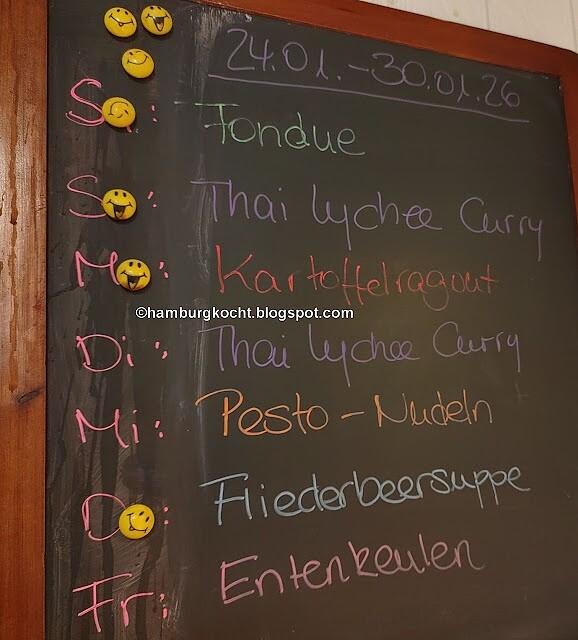 24.01.-30.01.26
S: Fondue
S: Thai Lychee Curry
M: Kartoffelragout
©hamburgkocht.blogspot.com
Di: Thai Lychee Curry
Mi: Pesto - Nudeln
D: Fliederbeersuppe
Fr: Entenkeulen